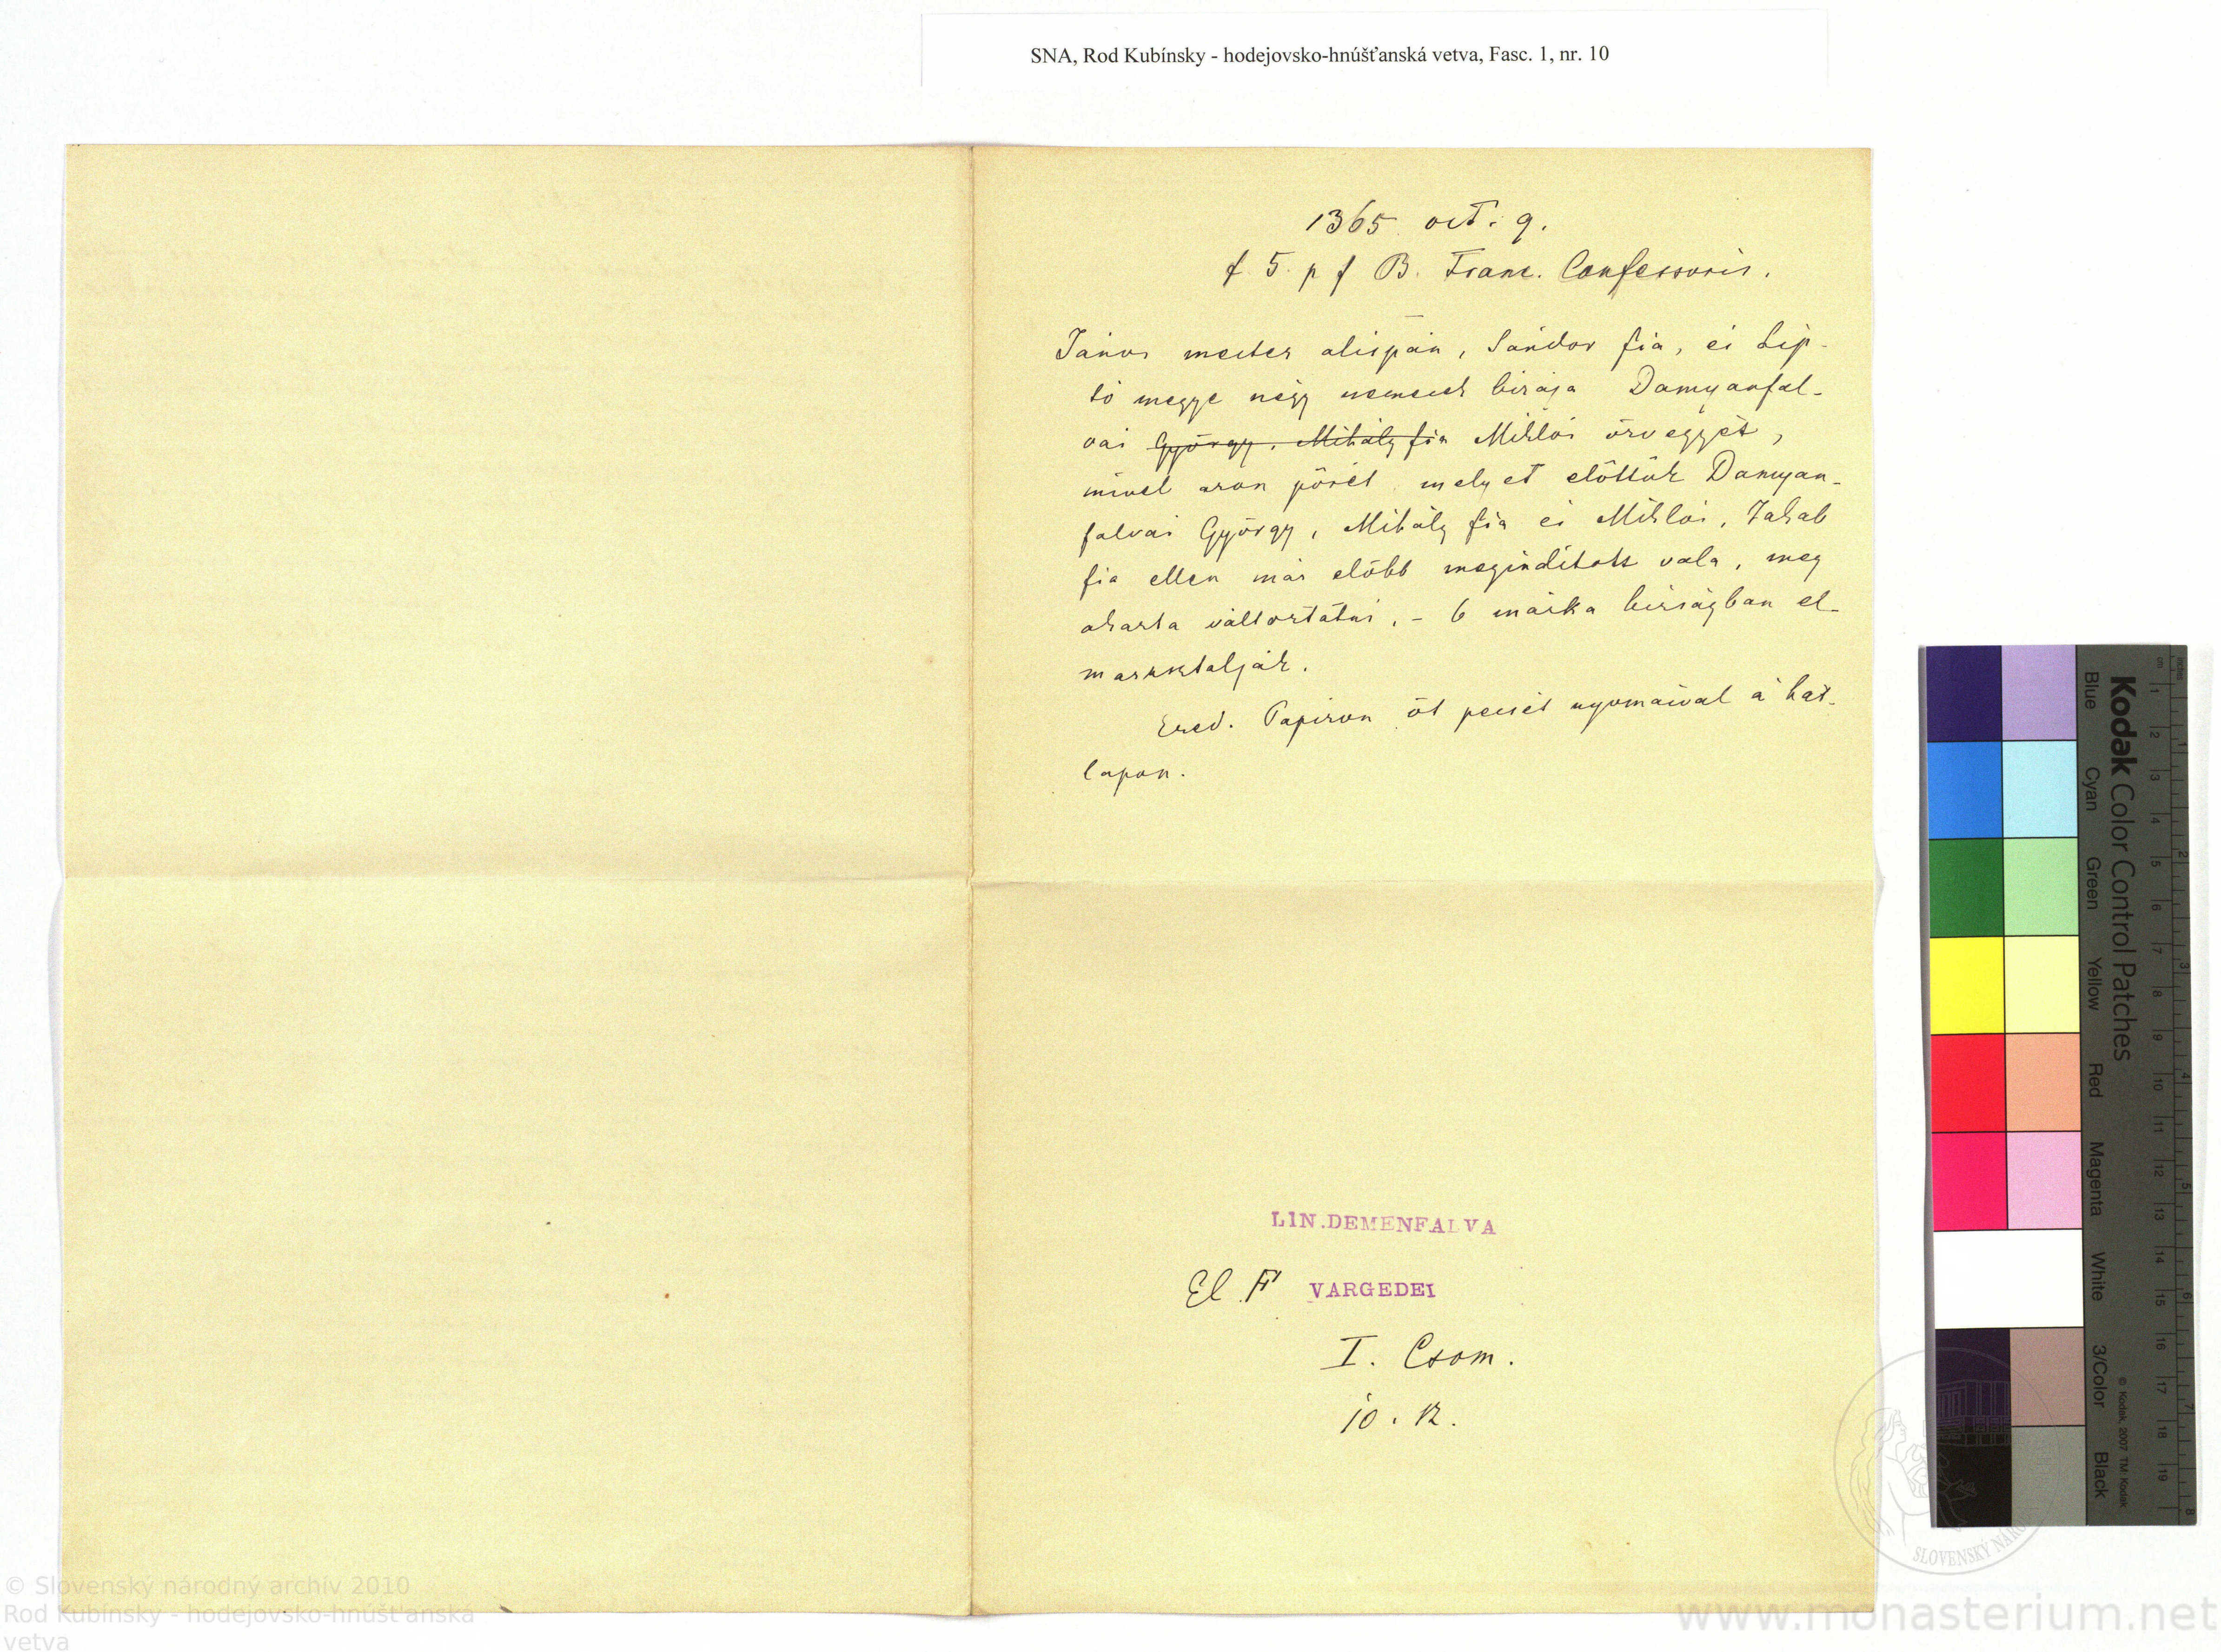 SNA, Rod Kubínsky - hodejovsko-hnúšťanská vetva, Fasc. 1, nr. 10
1365 oct. 9.
f. 5. p f B. Franc. Confessoris.
János mester alispán, Sándor fia, és Lip-
tó megye négy nemesek birája Damyanfal-
vai György, Mihály fia Miklós özvegyét,
mivel azon pörét melyet előttük Damyan-
falvai György, Mihály fia és Miklós, Jakab
fia ellen már előbb meginditott vala, meg
akarta változtatni, - 6 márka birságban el-
marasztalják.
Ered. Papiron öt pecsét nyomaival a hát-
lapon.
LIN.DEMENFALVA
El F VARGEDEI
I. Csom.
10. R.
Kodak Color Control Patches
Blue Cyan Green Yellow Red Magenta White 3/Color Black
© Kodak, 2007 TM: Kodak
cm 1 2 3 4 5 6 7 8 9 10 11 12 13 14 15 16 17 18 19
inches 1 2 3 4 5 6 7 8
SLOVENSKÝ NÁRO
© Slovenský národný archív 2010
Rod Kubínsky - hodejovsko-hnúšťanská
vetva
www.monasterium.net